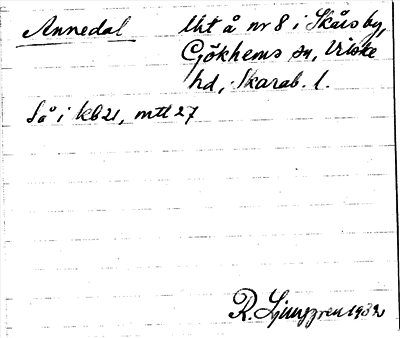 Annedal Uht å nr 8 i Skårs by,
Gökhems sn, Vilske
hd, Skarab. l.
Så i kb 21, mtl 27
R. Ljunggren 1932